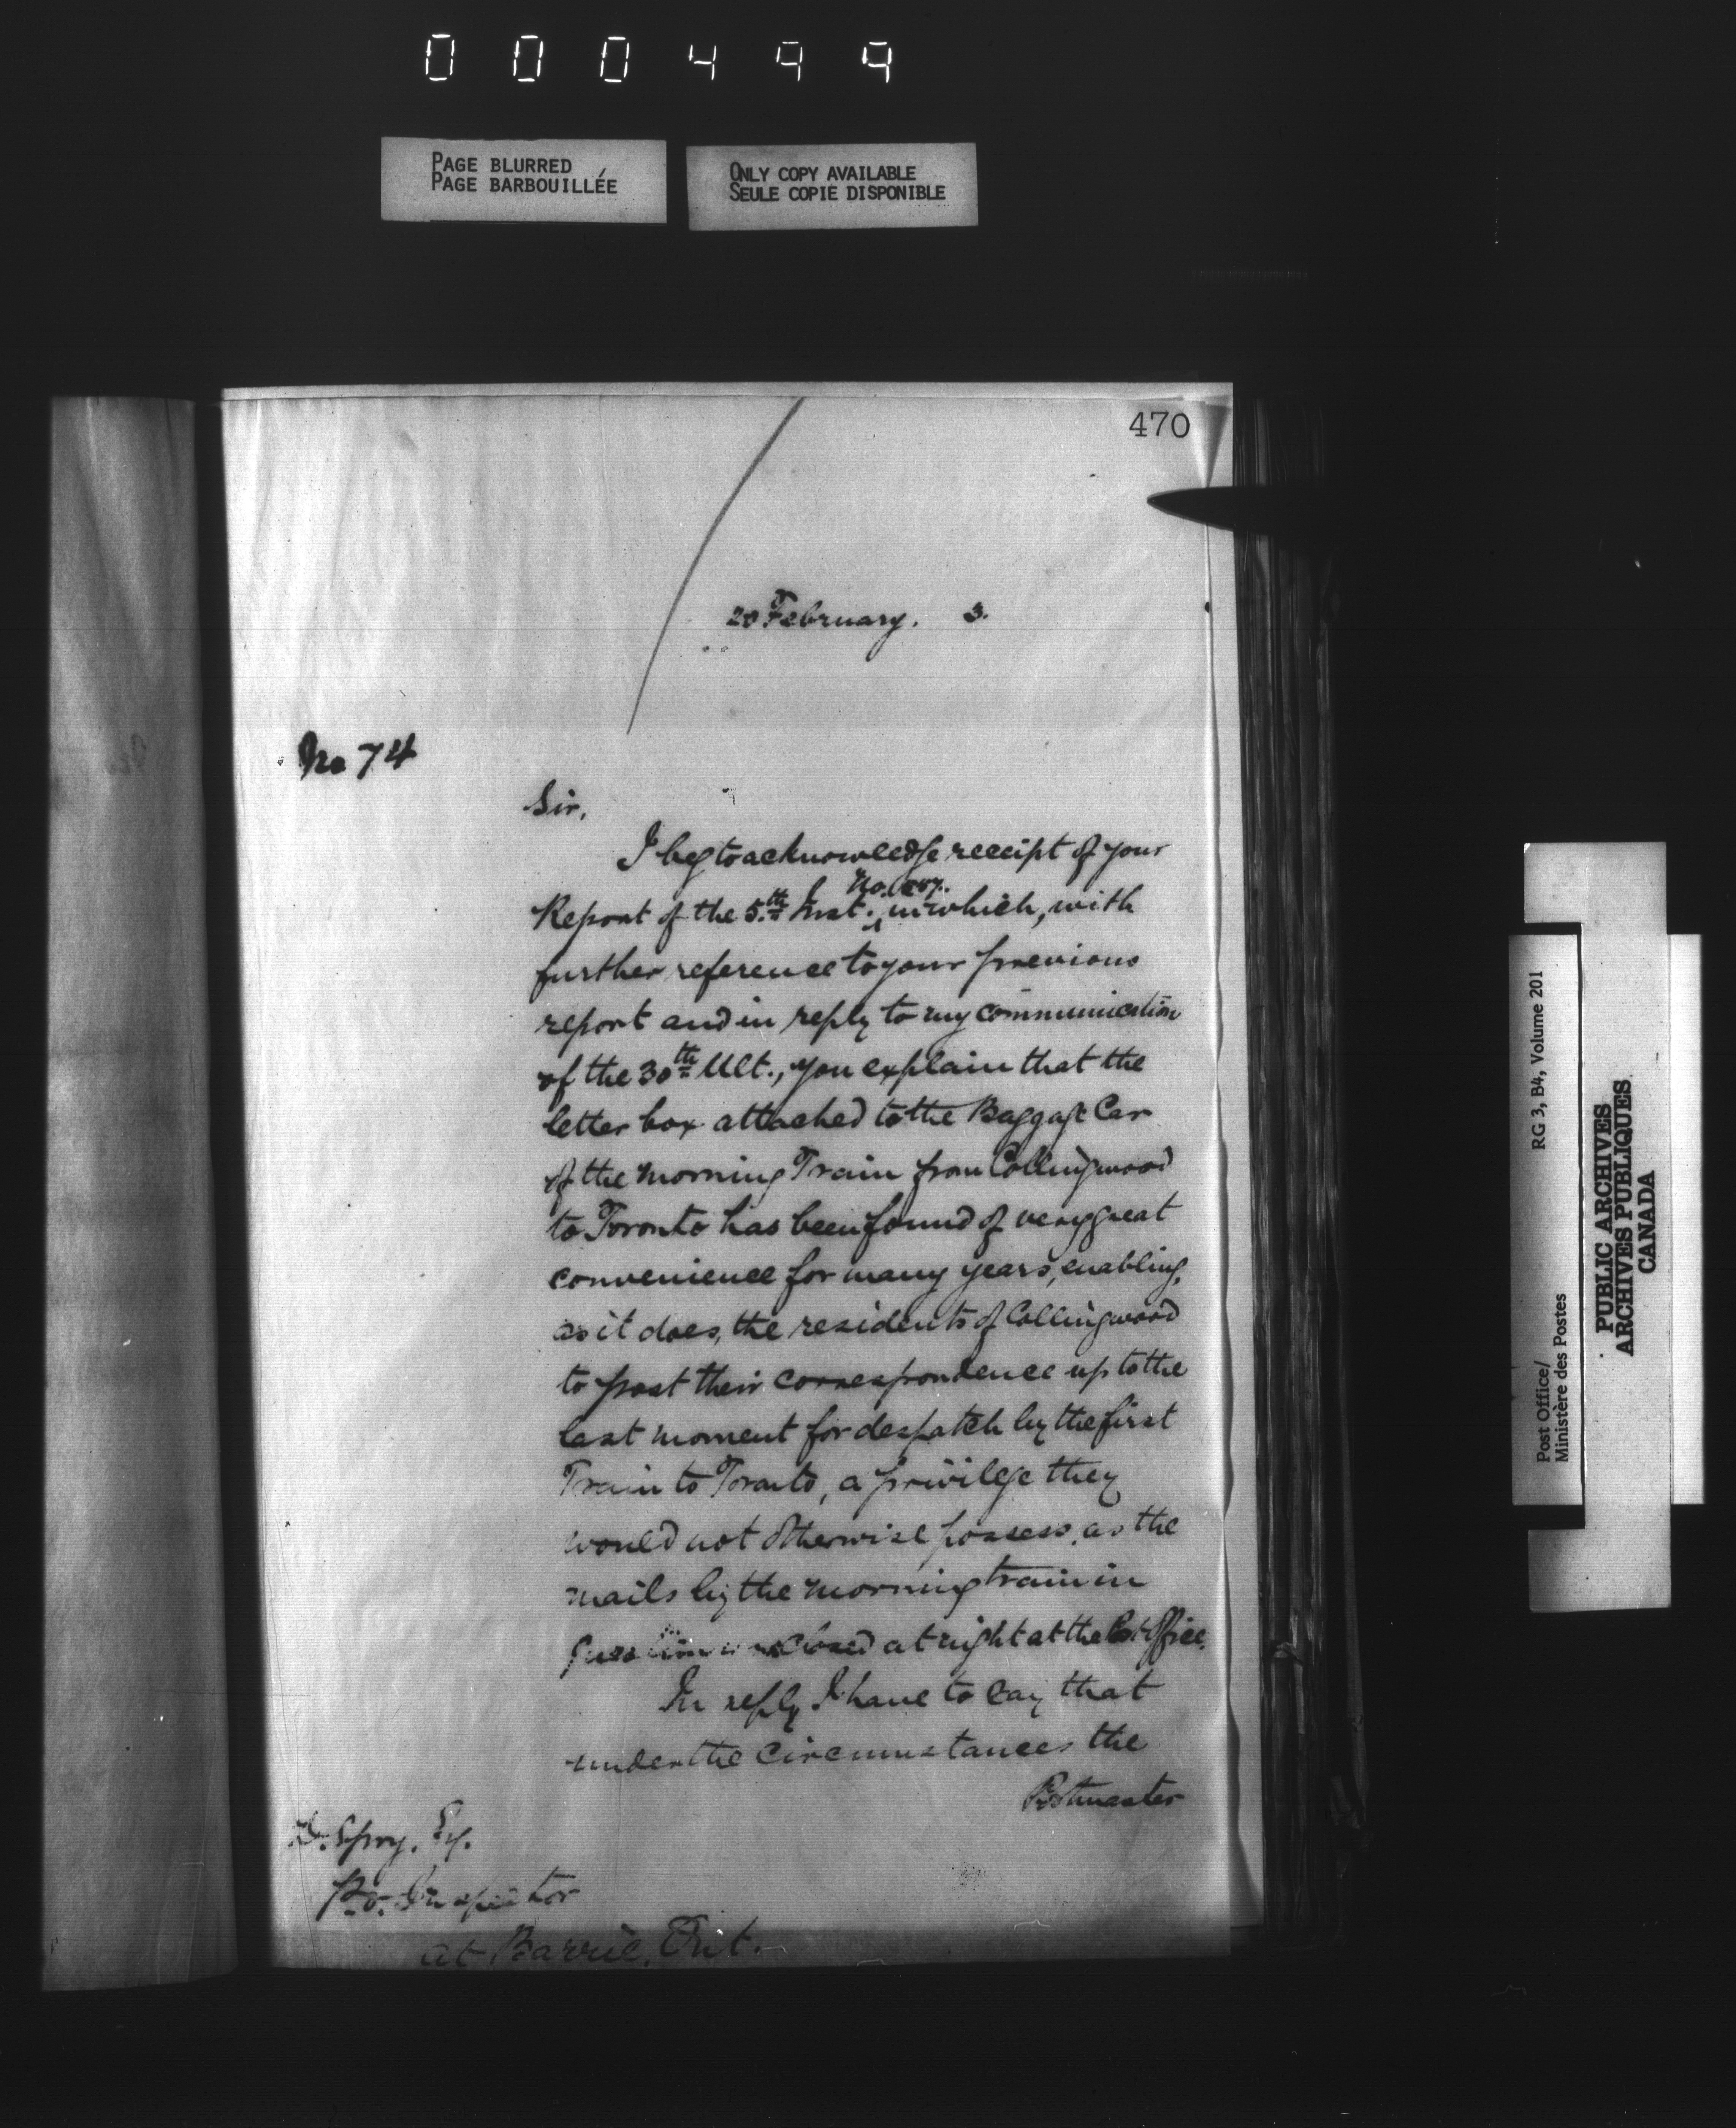 000499
PAGE BLURRED
PAGE BARBOUILLÉE
ONLY COPY AVAILABLE
SEULE COPIE DISPONIBLE
470
20 February. 3.
No 74
Sir,
I beg to acknowledge receipt of your
No.
Report of the 5.th Inst. in which, with
further reference to your previous
report and in reply to my communication
of the 30th Ult., you explain that the
letter box attached to the Baggage Car
of the Morning Train from Collingwood
to Toronto has been found of very great
convenience for many years, enabling,
as it does, the residents of Collingwood
to post their correspondence up to the
last moment for despatch by the first
Train to Toronto, a privilege they
would not otherwise possess, as the
mails by the morning train in
question closed at night at the Post Office.
In reply I have to say that
under the circumstances the
Postmaster
D. Spry, Esq.
P.O. Inspector
at Barrie, Ont.
RG 3, B4, Volume 201
Post Office/
Ministère des Postes
PUBLIC ARCHIVES
ARCHIVES PUBLIQUES
CANADA